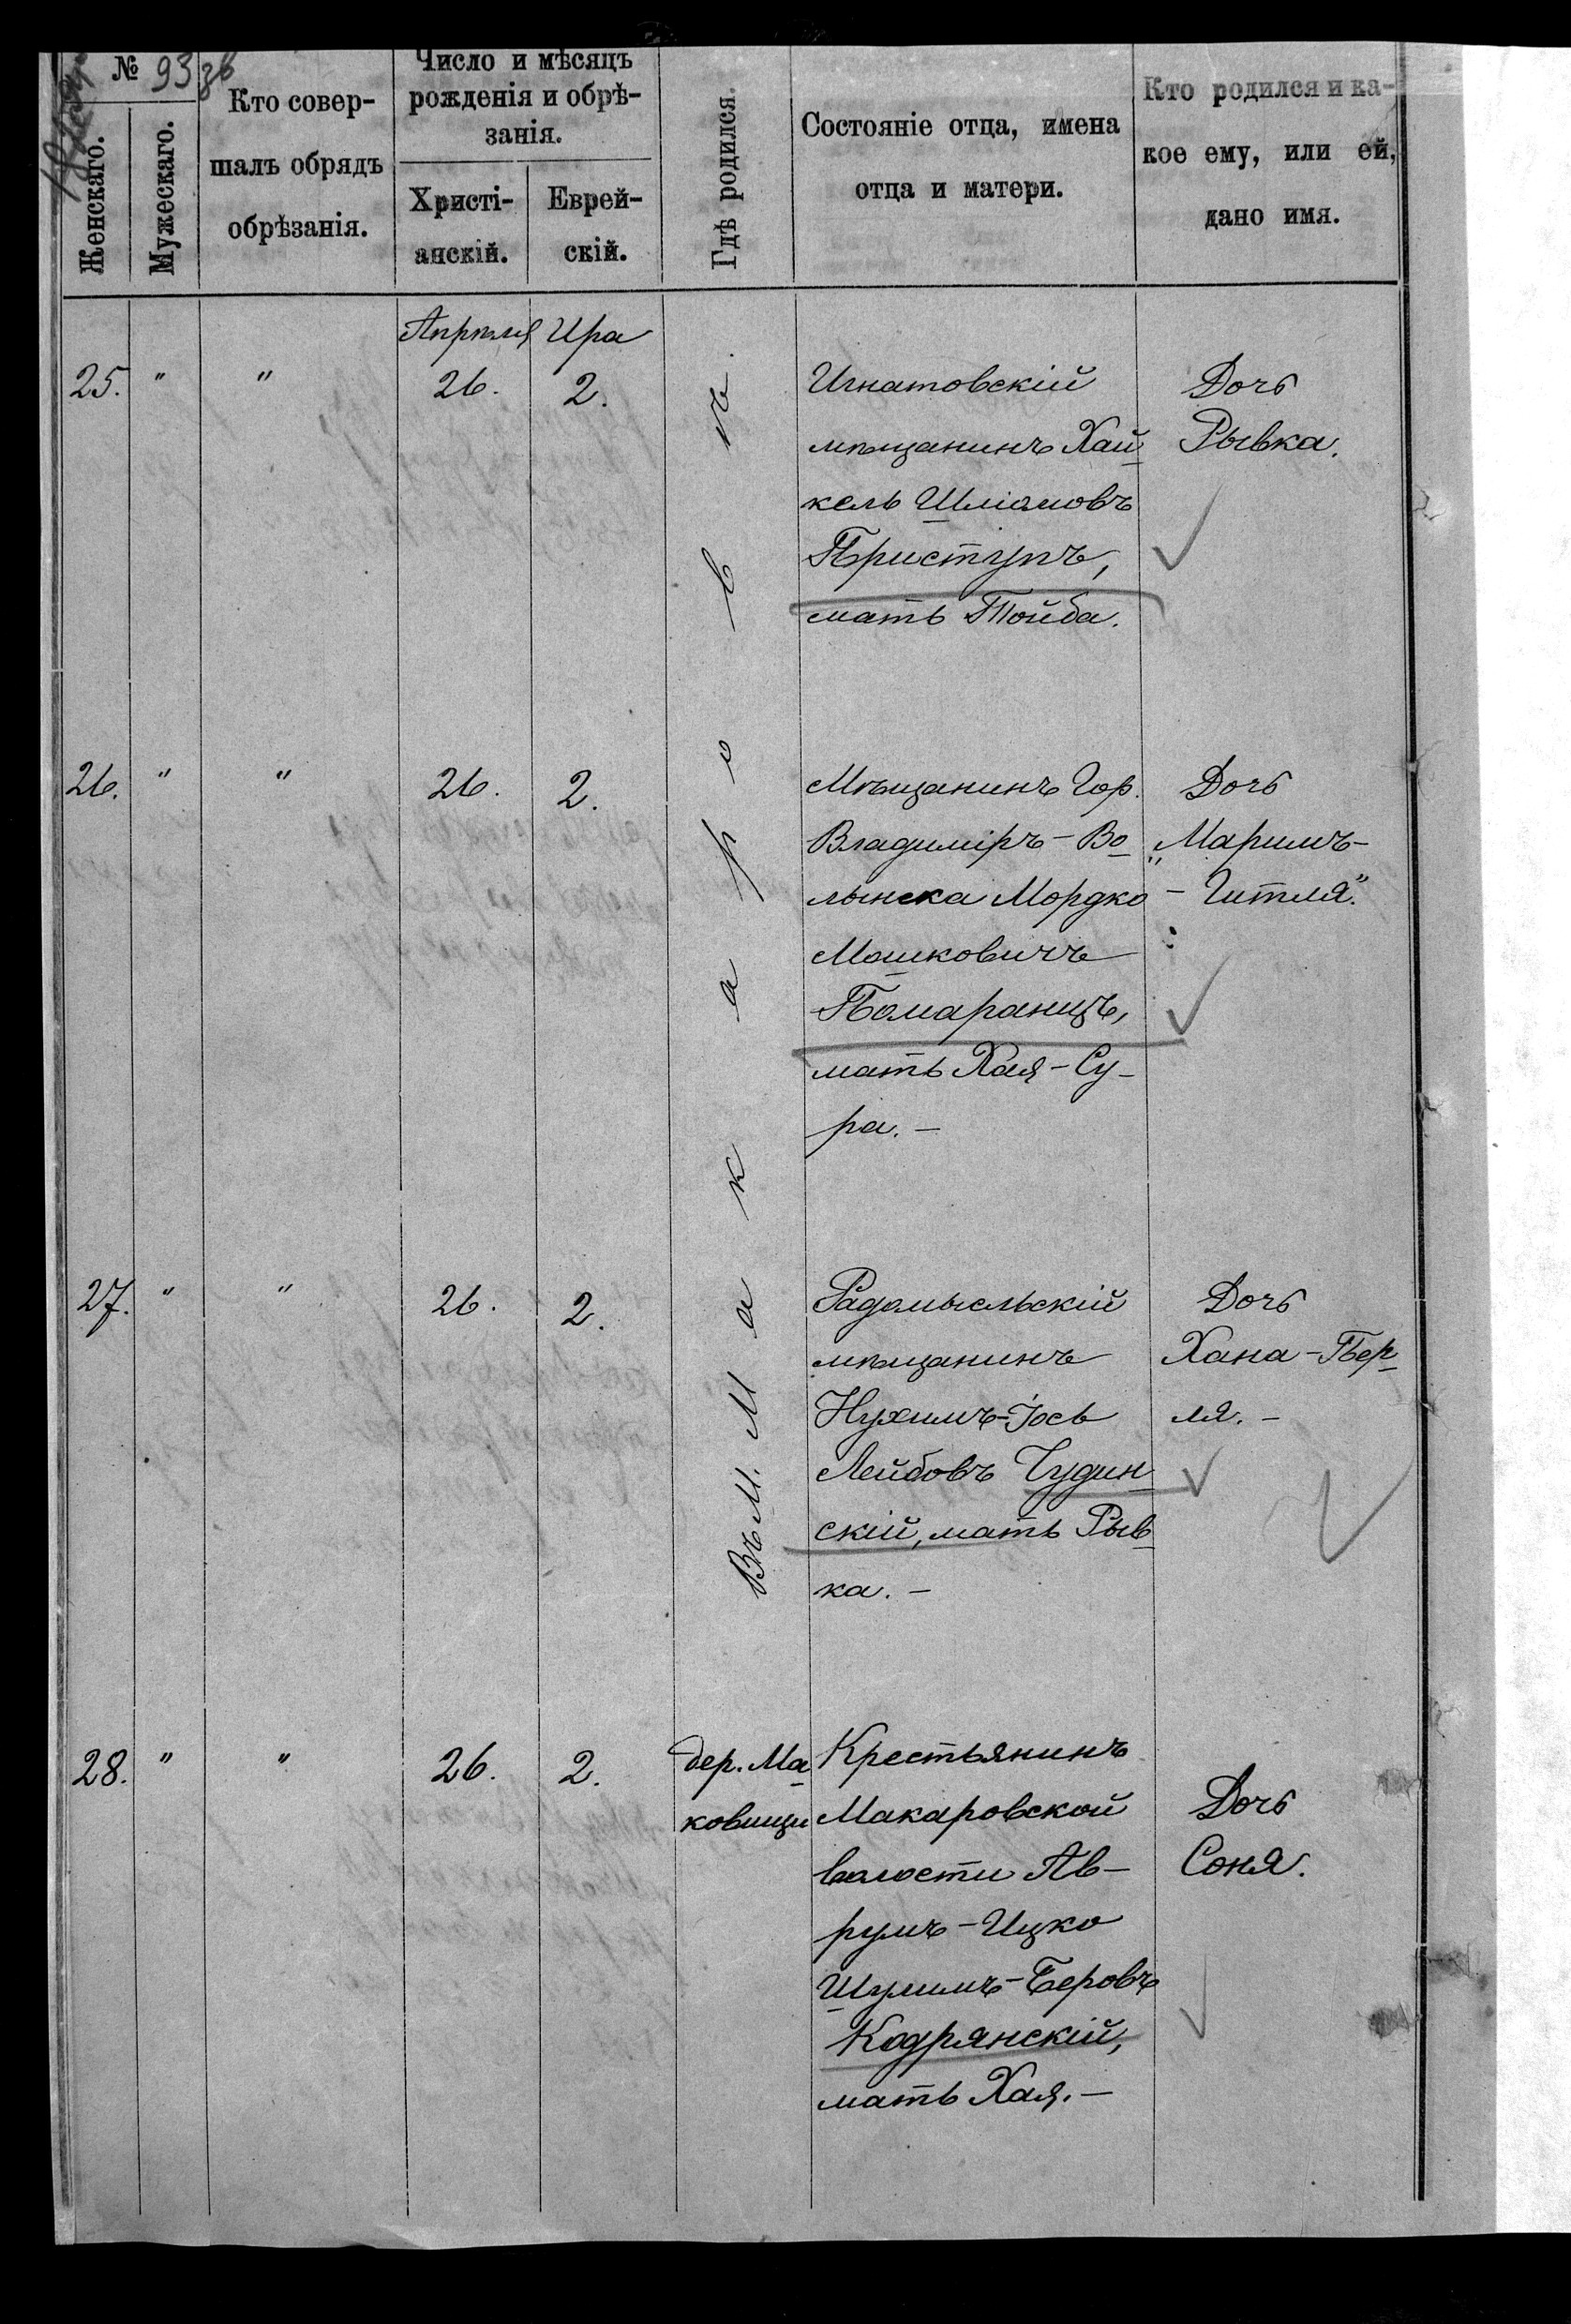 № 93 зв
Женскаго.
Мужескаго.
Кто совер-
шалъ обрядъ
обрѣзанія.
Число и мѣсяцъ
рожденія и обрѣ-
занія.
Христі-
анскій.
Еврей-
скій.
Гдѣ родился.
Состояніе отца, имена
отца и матери.
Кто родился и ка-
кое ему, или ей,
дано имя.
Въ М. Макаровѣ.
Апрѣля Ира
25. " " 26. 2.
Игнатовскій
мѣщанинъ Хай-
кель Шліомовъ
Приступъ,
мать Тойба.
Дочь
Рывка.
26. " " 26. 2.
Мѣщанинъ Гор.
Владиміръ-Во-
лынска Мордко
Мошковичъ
Помаранцъ,
мать Хая-Су-
ра.-
Дочь
„Маримъ-
-Гитля."
27. " " 26. 2.
Радомысльскій
мѣщанинъ
Нухимъ-Іось
Лейбовъ Чудин-
скій, мать Рыв-
ка.-
Дочь
Хана-Пер-
ля.-
28. " " 26. 2.
дер. Ма-
ковищи
Крестьянинъ
Макаровской
волости Ав-
румъ-Ицко
Шулимъ-Беровъ
Кодрянскій,
мать Хая.-
Дочь
Соня.